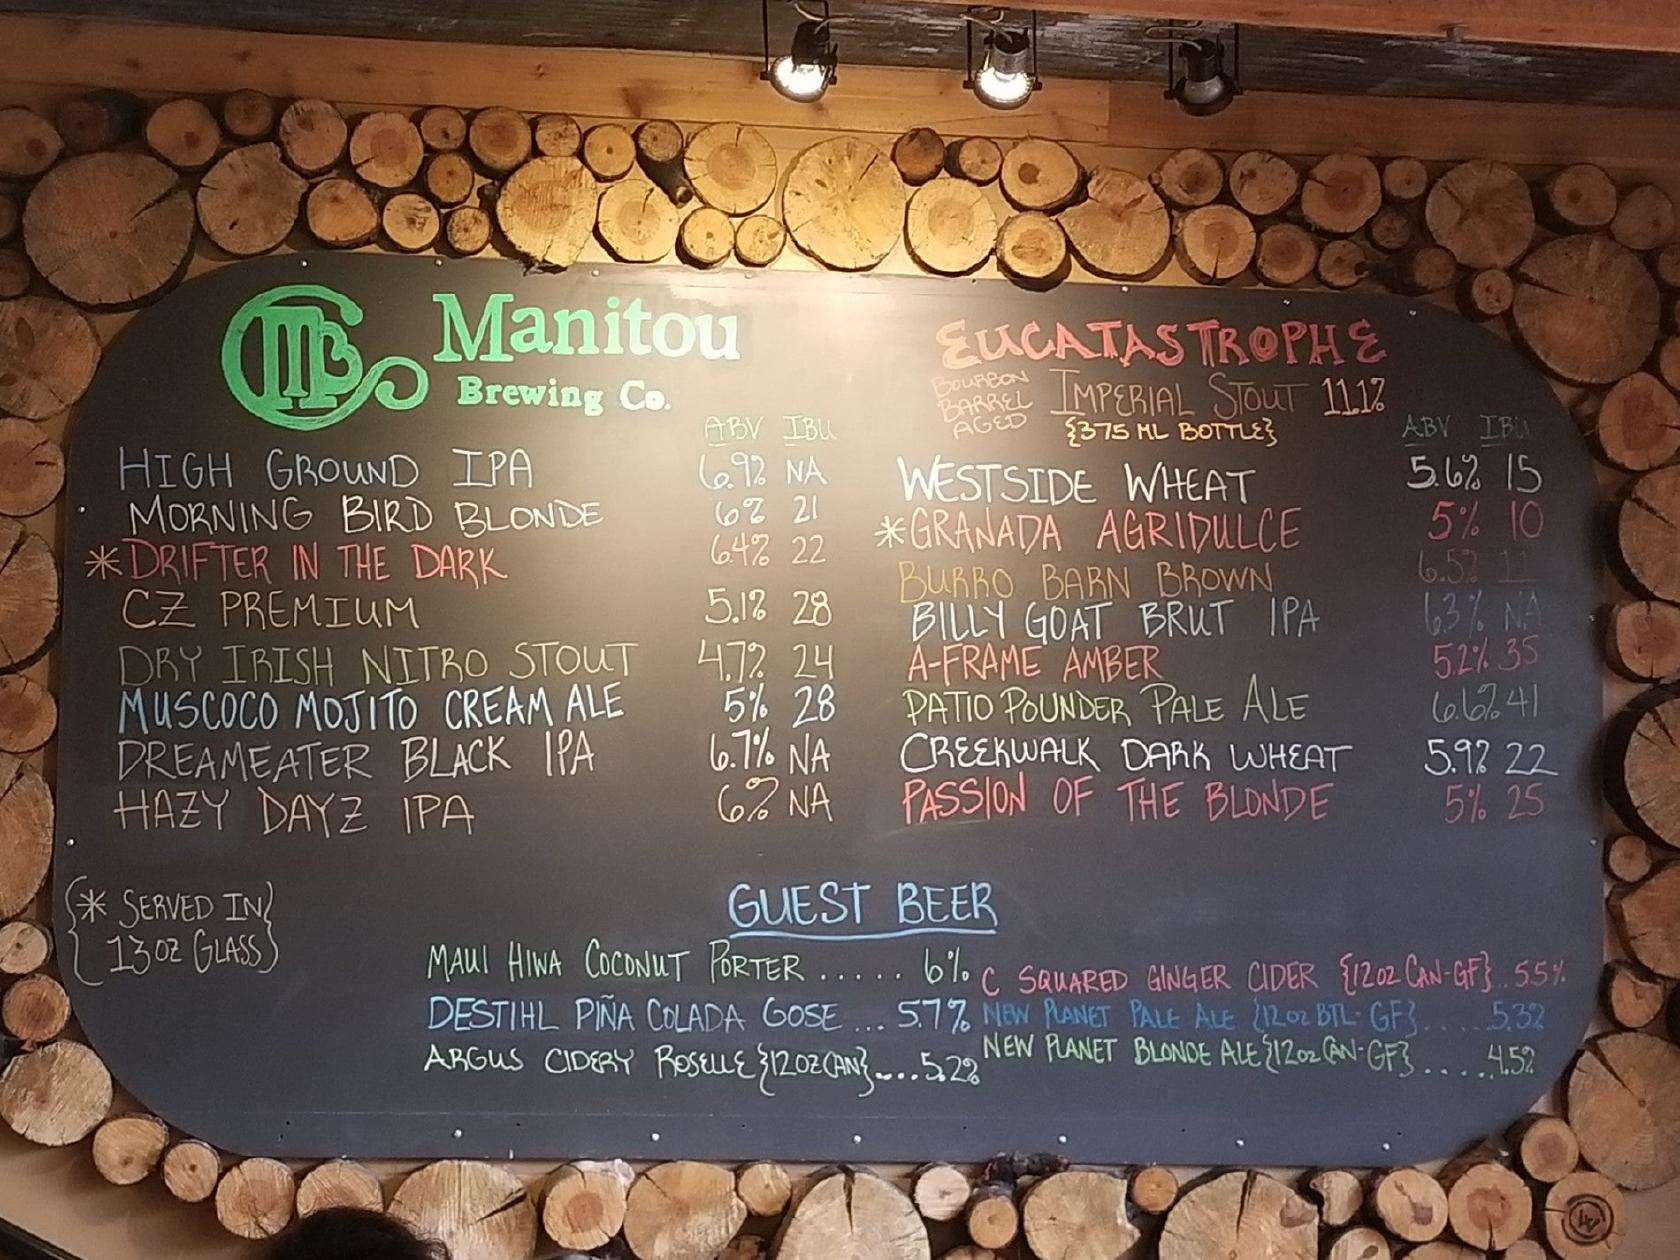 Manitou
Brewing Co.
ABV IBU
HIGH GROUND IPA 6.9% NA
MORNING BIRD BLONDE 6% 21
*DRIFTER IN THE DARK 6.4% 22
CZ PREMIUM 5.1% 28
DRY IRISH NITRO STOUT 4.7% 24
MUSCOCO MOJITO CREAM ALE 5% 28
DREAMEATER BLACK IPA 6.7% NA
HAZY DAYZ IPA 6% NA
EUCATASTROPHE
BOURBON BARREL AGED
IMPERIAL STOUT 11.1%
{375 ML BOTTLE}
ABV IBU
WESTSIDE WHEAT 5.6% 15
*GRANADA AGRIDULCE 5% 10
BURRO BARN BROWN 6.5% 11
BILLY GOAT BRUT IPA 6.3% NA
A-FRAME AMBER 5.2% 35
PATIO POUNDER PALE ALE 6.6% 41
CREEKWALK DARK WHEAT 5.9% 22
PASSION OF THE BLONDE 5% 25
{* SERVED IN}
{13 OZ GLASS}
GUEST BEER
MAUI HIWA COCONUT PORTER ..... 6%
DESTIHL PIÑA COLADA GOSE ... 5.7%
ARGUS CIDERY ROSELLE {12 OZ CAN} .... 5.2%
C SQUARED GINGER CIDER {12 OZ CAN-GF} .. 5.5%
NEW PLANET PALE ALE {12 OZ BTL-GF} ...... 5.3%
NEW PLANET BLONDE ALE {12 OZ CAN-GF} ..... 4.5%